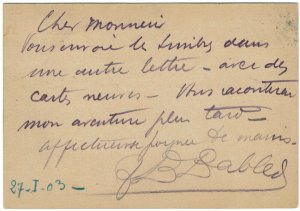 Cher Monsieur
Vous envoie le timbre dans
une autre lettre - avec des
cartes neuves - Vous raconterai
mon aventure plus tard -
affectueuse poignée de mains -
27-I-03-